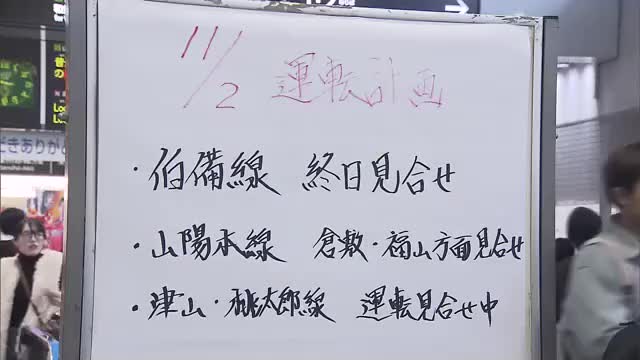 11/2 運転計画
・伯備線 終日見合せ
・山陽本線 倉敷・福山方面見合せ
・津山・桃太郎線 運転見合せ中